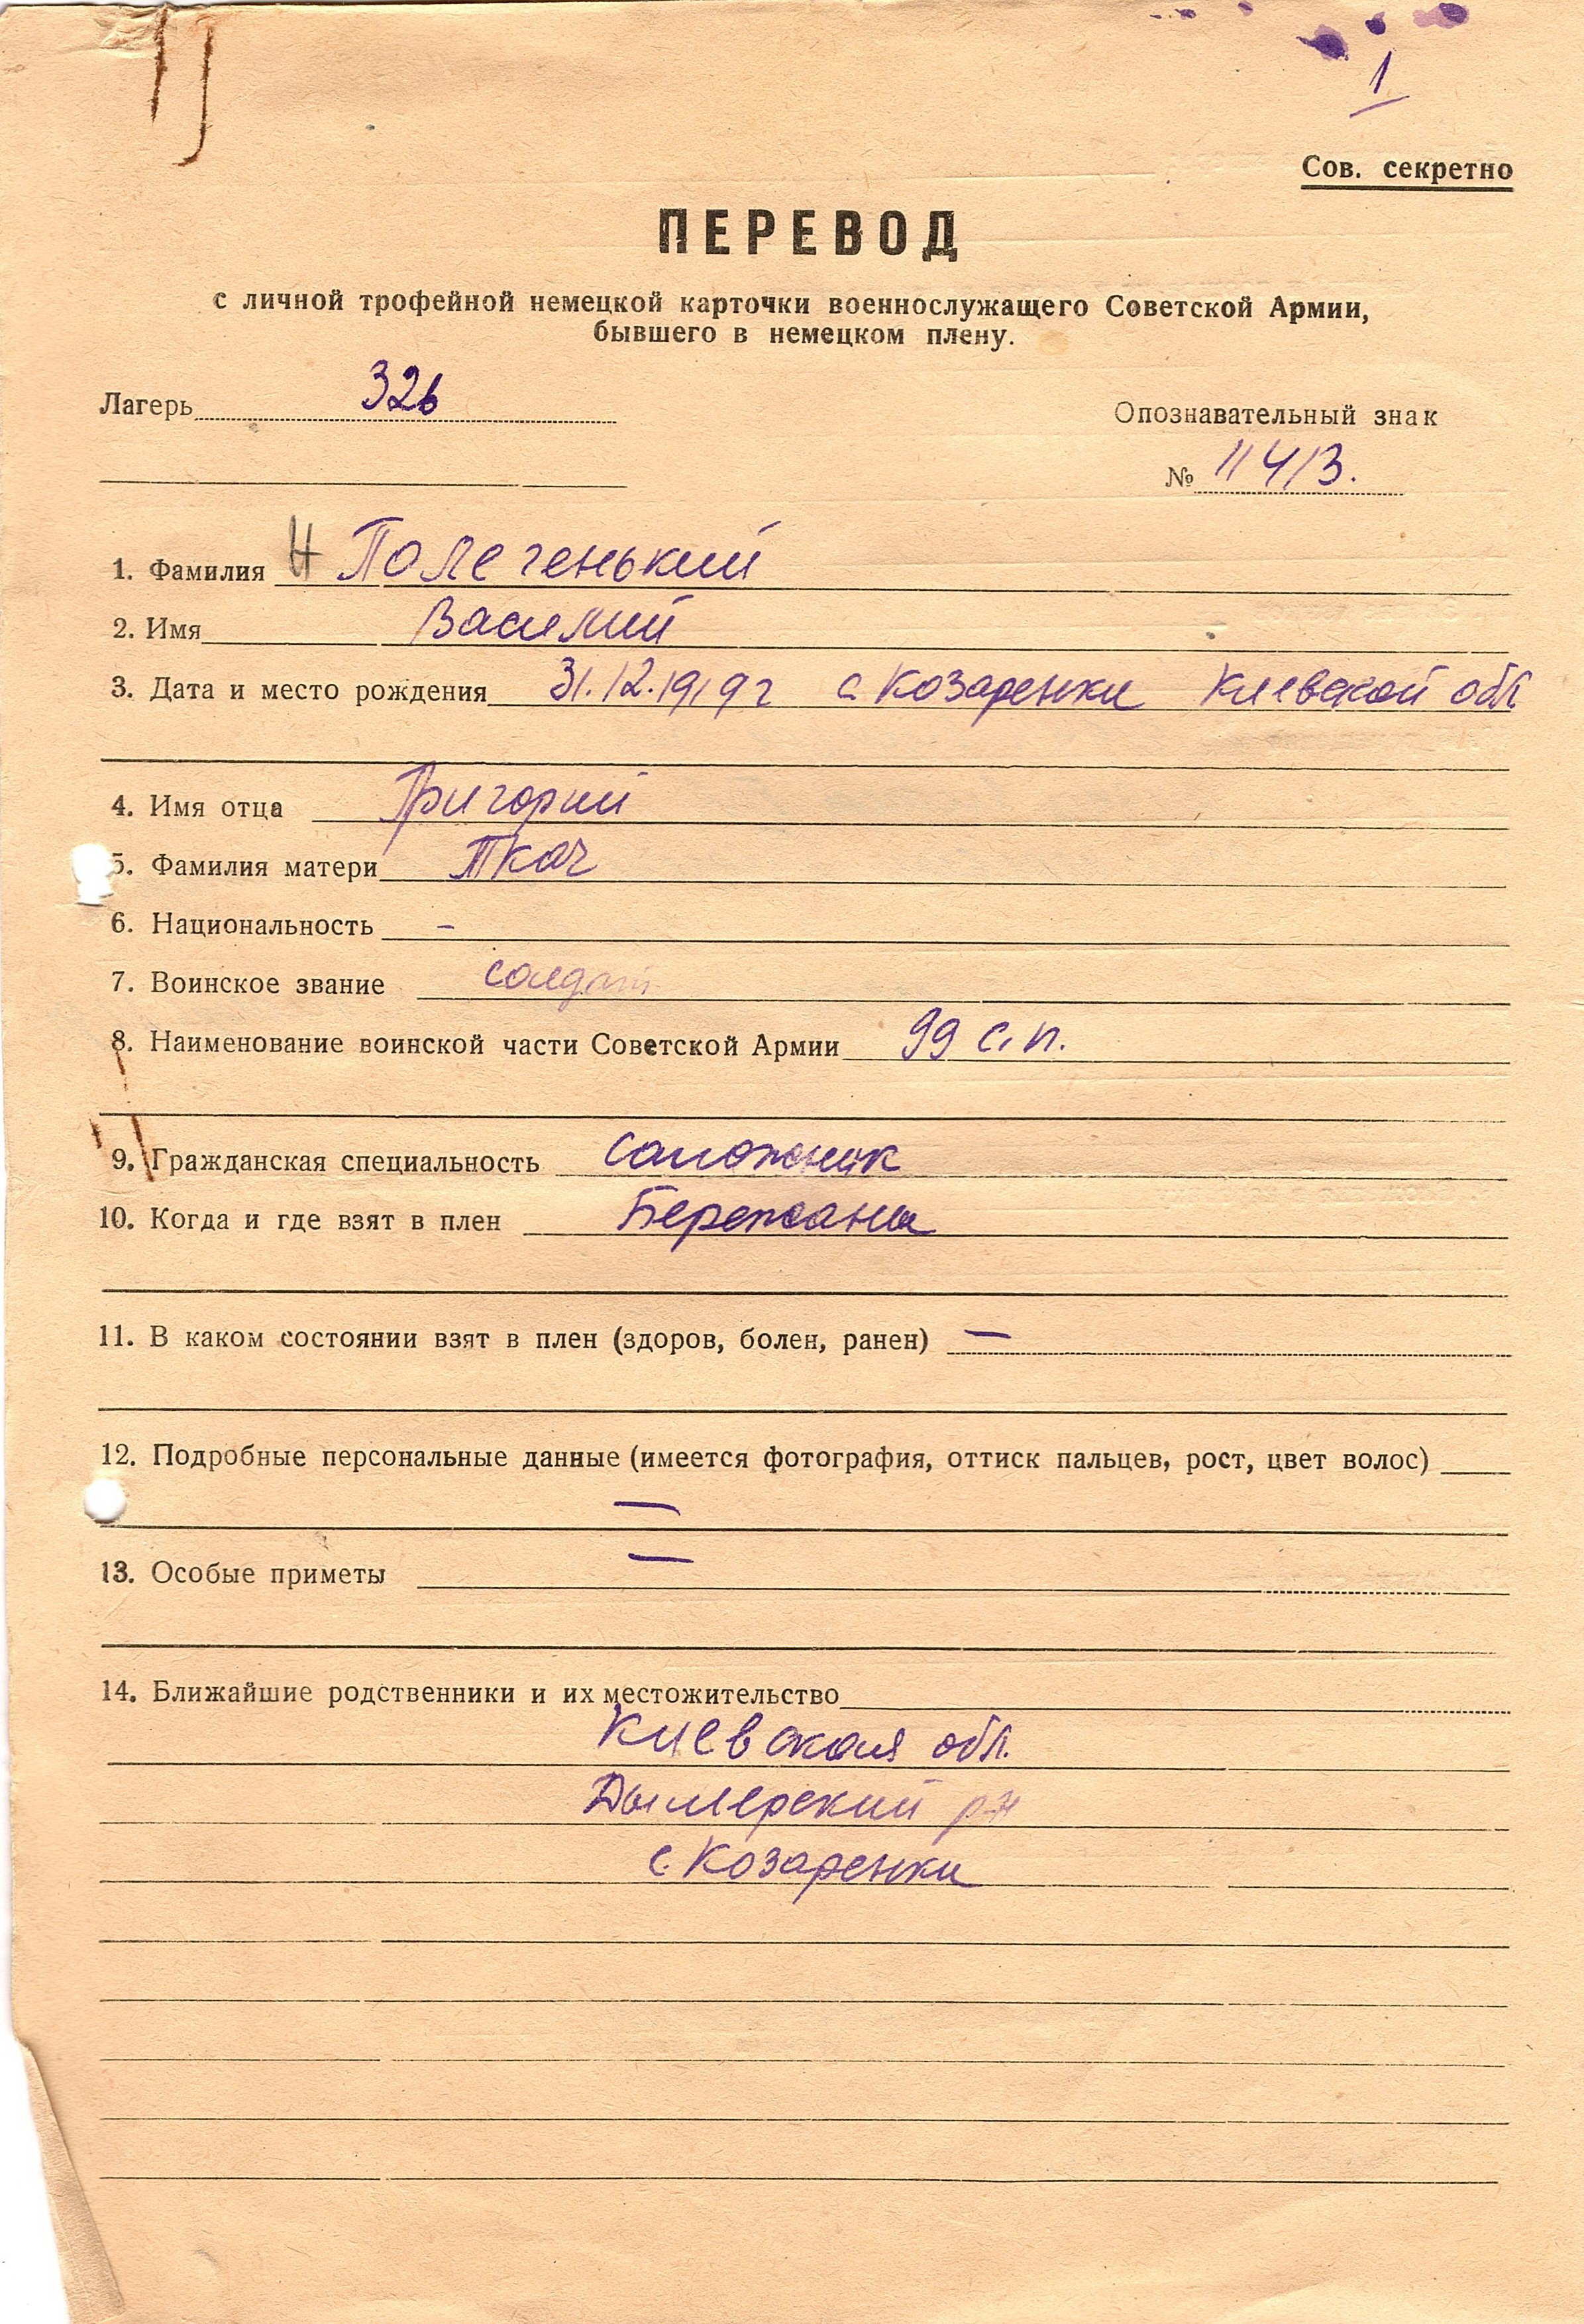 1
Сов. секретно
ПЕРЕВОД
с личной трофейной немецкой карточки военнослужащего Советской Армии,
бывшего в немецком плену.
Лагерь 326
Опознавательный знак
№ 11413.
1. Фамилия Н Полегенький
2. Имя Василий
3. Дата и место рождения 31.12.1919 г с Козаренки Киевской обл
4. Имя отца Григорий
5. Фамилия матери Ткач
6. Национальность -
7. Воинское звание солдат
8. Наименование воинской части Советской Армии 99 с.п.
9. Гражданская специальность сапожник
10. Когда и где взят в плен Бережаны
11. В каком состоянии взят в плен (здоров, болен, ранен) —
12. Подробные персональные данные (имеется фотография, оттиск пальцев, рост, цвет волос)
—
13. Особые приметы —
14. Ближайшие родственники и их местожительство
Киевская обл.
Дымерский р-н
с. Козаренки